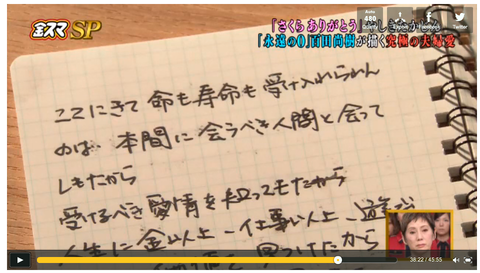 金スマSP
「さくら ありがとう」
「永遠の0」百田尚樹が描く究極の夫婦愛
ここにきて 命も寿命も受け入れられん
のは、本間に会うべき人間と会って
しもたから
受けるべき愛情を知ってもたから
人生に金以上、仕事以上、
見つけたから
Auto
480
Facebook
Twitter
38:22 / 45:55